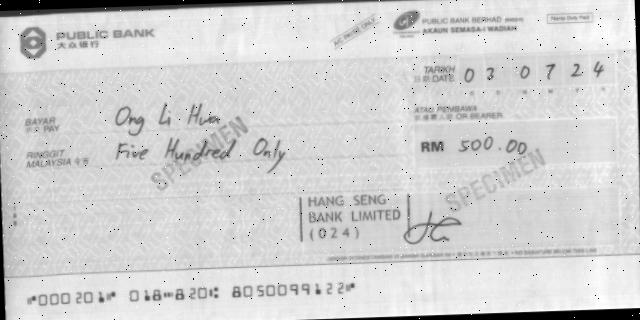 PUBLIC BANK
大众银行
A/C PAYEE ONLY
PUBLIC BANK BERHAD
AKAUN SEMASA-I WADIAH
Stamp Duty Paid
TARIKH
日期 DATE
0 3 0 7 2 4
D D M M Y Y
BAYAR
PAY
Ong Li Hua
ATAU PEMBAWA
OR BEARER
RINGGIT
MALAYSIA
Five Hundred Only
RM 500.00
SPECIMEN
SPECIMEN
HANG SENG
BANK LIMITED
(024)
⑈000201⑈ 018⑉820⑆ 8050099122⑈